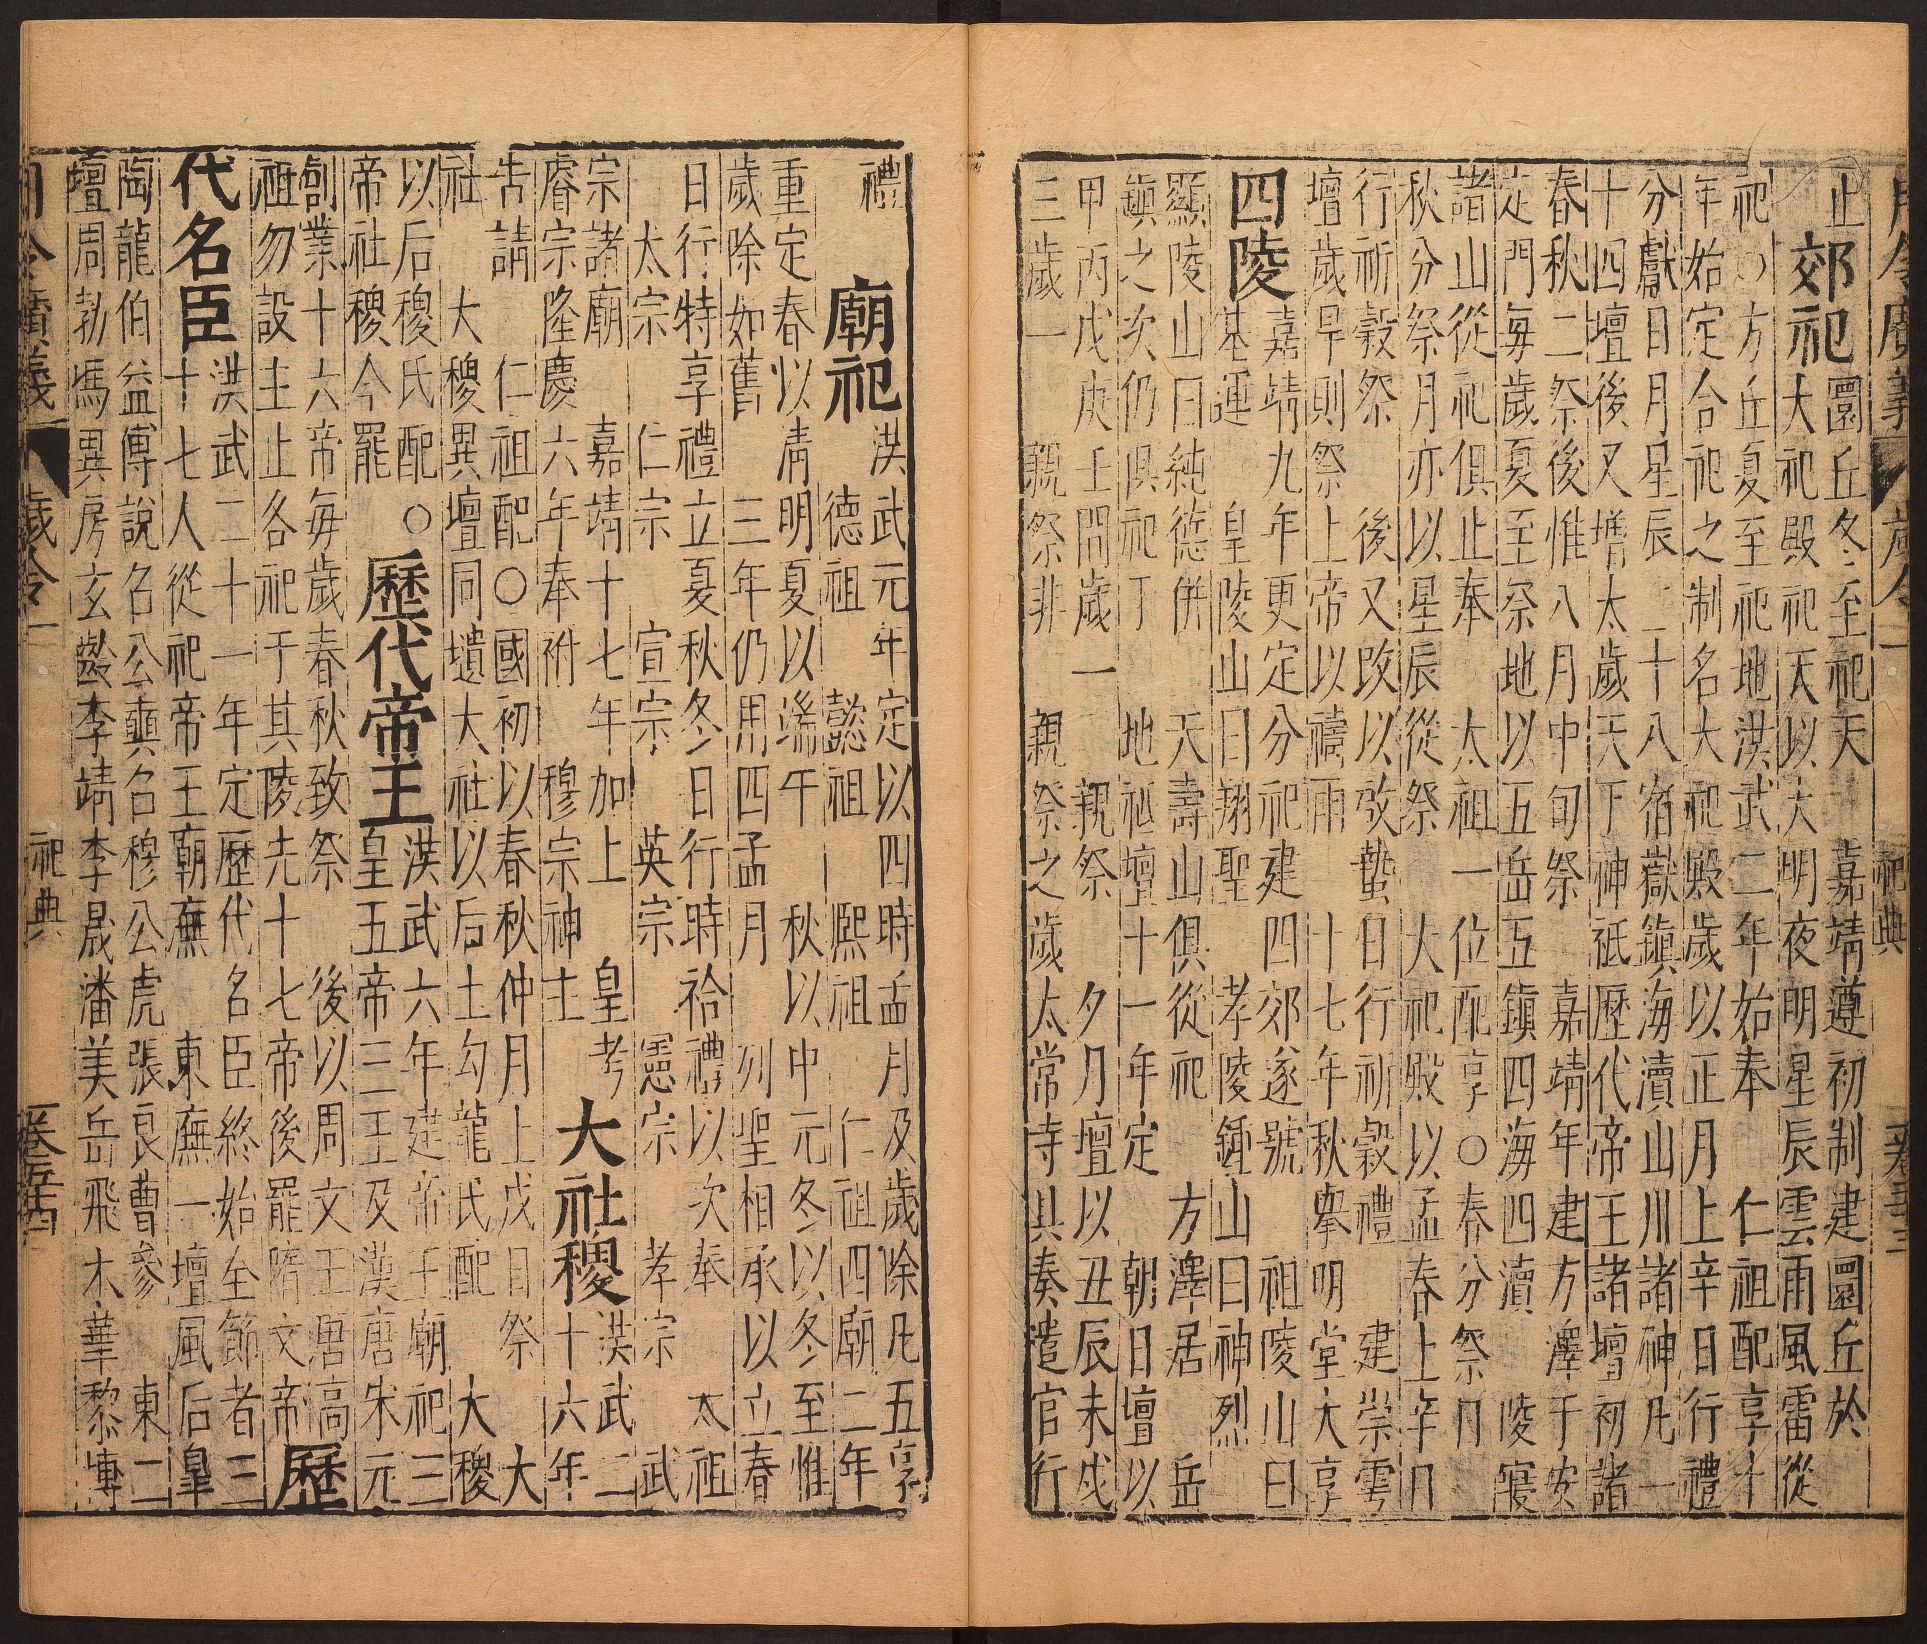 月令廣義 歲令一 祀典
止 郊祀 圜丘冬至祀天 嘉靖遵初制建圜丘於
大祀殿祀天以大明夜明星辰雲雨風雷從
祀○方丘夏至祀地洪武二年始奉 仁祖配享十
年始定合祀之制名大祀殿歲以正月上辛日行禮
分獻日月星辰 二十八宿嶽鎮海瀆山川諸神凡一
十四壇後又增太歲天下神祇歷代帝王諸壇初諸
春秋二祭後惟八月中旬祭 嘉靖年建方澤于安
定門每歲夏至祭地以五岳五鎮四海四瀆 陵寢
諸山從祀俱止奉 太祖一位配享○春分祭日
秋分祭月亦以星辰從祭 大祀殿以孟春上辛日
行祈穀祭 後又改以啟蟄日行祈穀禮 建崇雩
壇歲旱則祭上帝以禱雨 十七年秋舉明堂大享
四陵 嘉靖九年更定分祀建四郊遂號 祖陵山曰
基運 皇陵山曰翔聖 孝陵鍾山曰神烈
顯陵山曰純德併 天壽山俱從祀 方澤居 岳
鎮之次仍俱祀丁 地祇壇十一年定 朝日壇以
甲丙戊庚壬間歲一 親祭 夕月壇以丑辰未戌
三歲一 親祭非 親祭之歲太常寺具奏遣官行
禮 廟祀 洪武元年定以四時孟月及歲除凡五享
德祖 懿祖 熙祖 仁祖四廟二年
重定春以清明夏以端午 秋以中元冬以冬至惟
歲除如舊 三年仍用四孟月 列聖相承以立春
日行特享禮立夏秋冬日行時祫禮以次奉 太祖
太宗 仁宗 宣宗 英宗 憲宗 孝宗 武
宗諸廟 嘉靖十七年加上 皇考
睿宗隆慶六年奉祔 穆宗神主
大社稷 洪武二
十六年
告請 仁祖配○國初以春秋仲月上戊日祭 大
社 大稷異壇同壝大社以后土勾龍氏配 大稷
以后稷氏配○
帝社稷今罷
歷代帝王 洪武六年建帝王廟祀三
皇五帝三王及漢唐宋元
創業十六帝每歲春秋致祭 後以周文王唐高
祖勿設主止各祀于其陵先十七帝後罷隋文帝 歷
代名臣 洪武二十一年定歷代名臣終始全節者三
十七人從祀帝王朝廡 東廡一壇風后皋
陶龍伯益傅說召公奭召穆公虎張良曹參 東二
壇周勃馮異房玄齡李靖李晟潘美岳飛木華黎博
月令廣義 歲令一 祀典